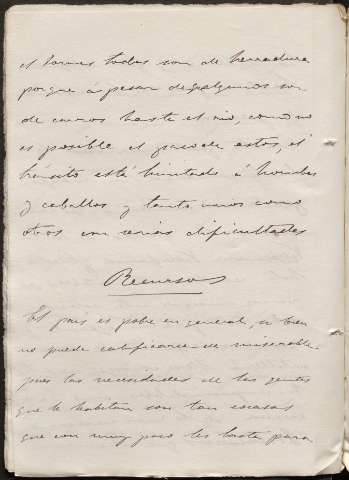 el Tormes todas son de herradura
porque á pesar de que algunos son
de carros hasta el rio, como no
es posible el paso de estos, el
tránsito está limitado á hombres
y caballos y tanto unos como
otros con serias dificultades
Recursos
El pais es pobre en general, si bien
no puede calificarse de miserable
pues las necesidades de las gentes
que le habitan son tan escasas
que con muy poco les basta para